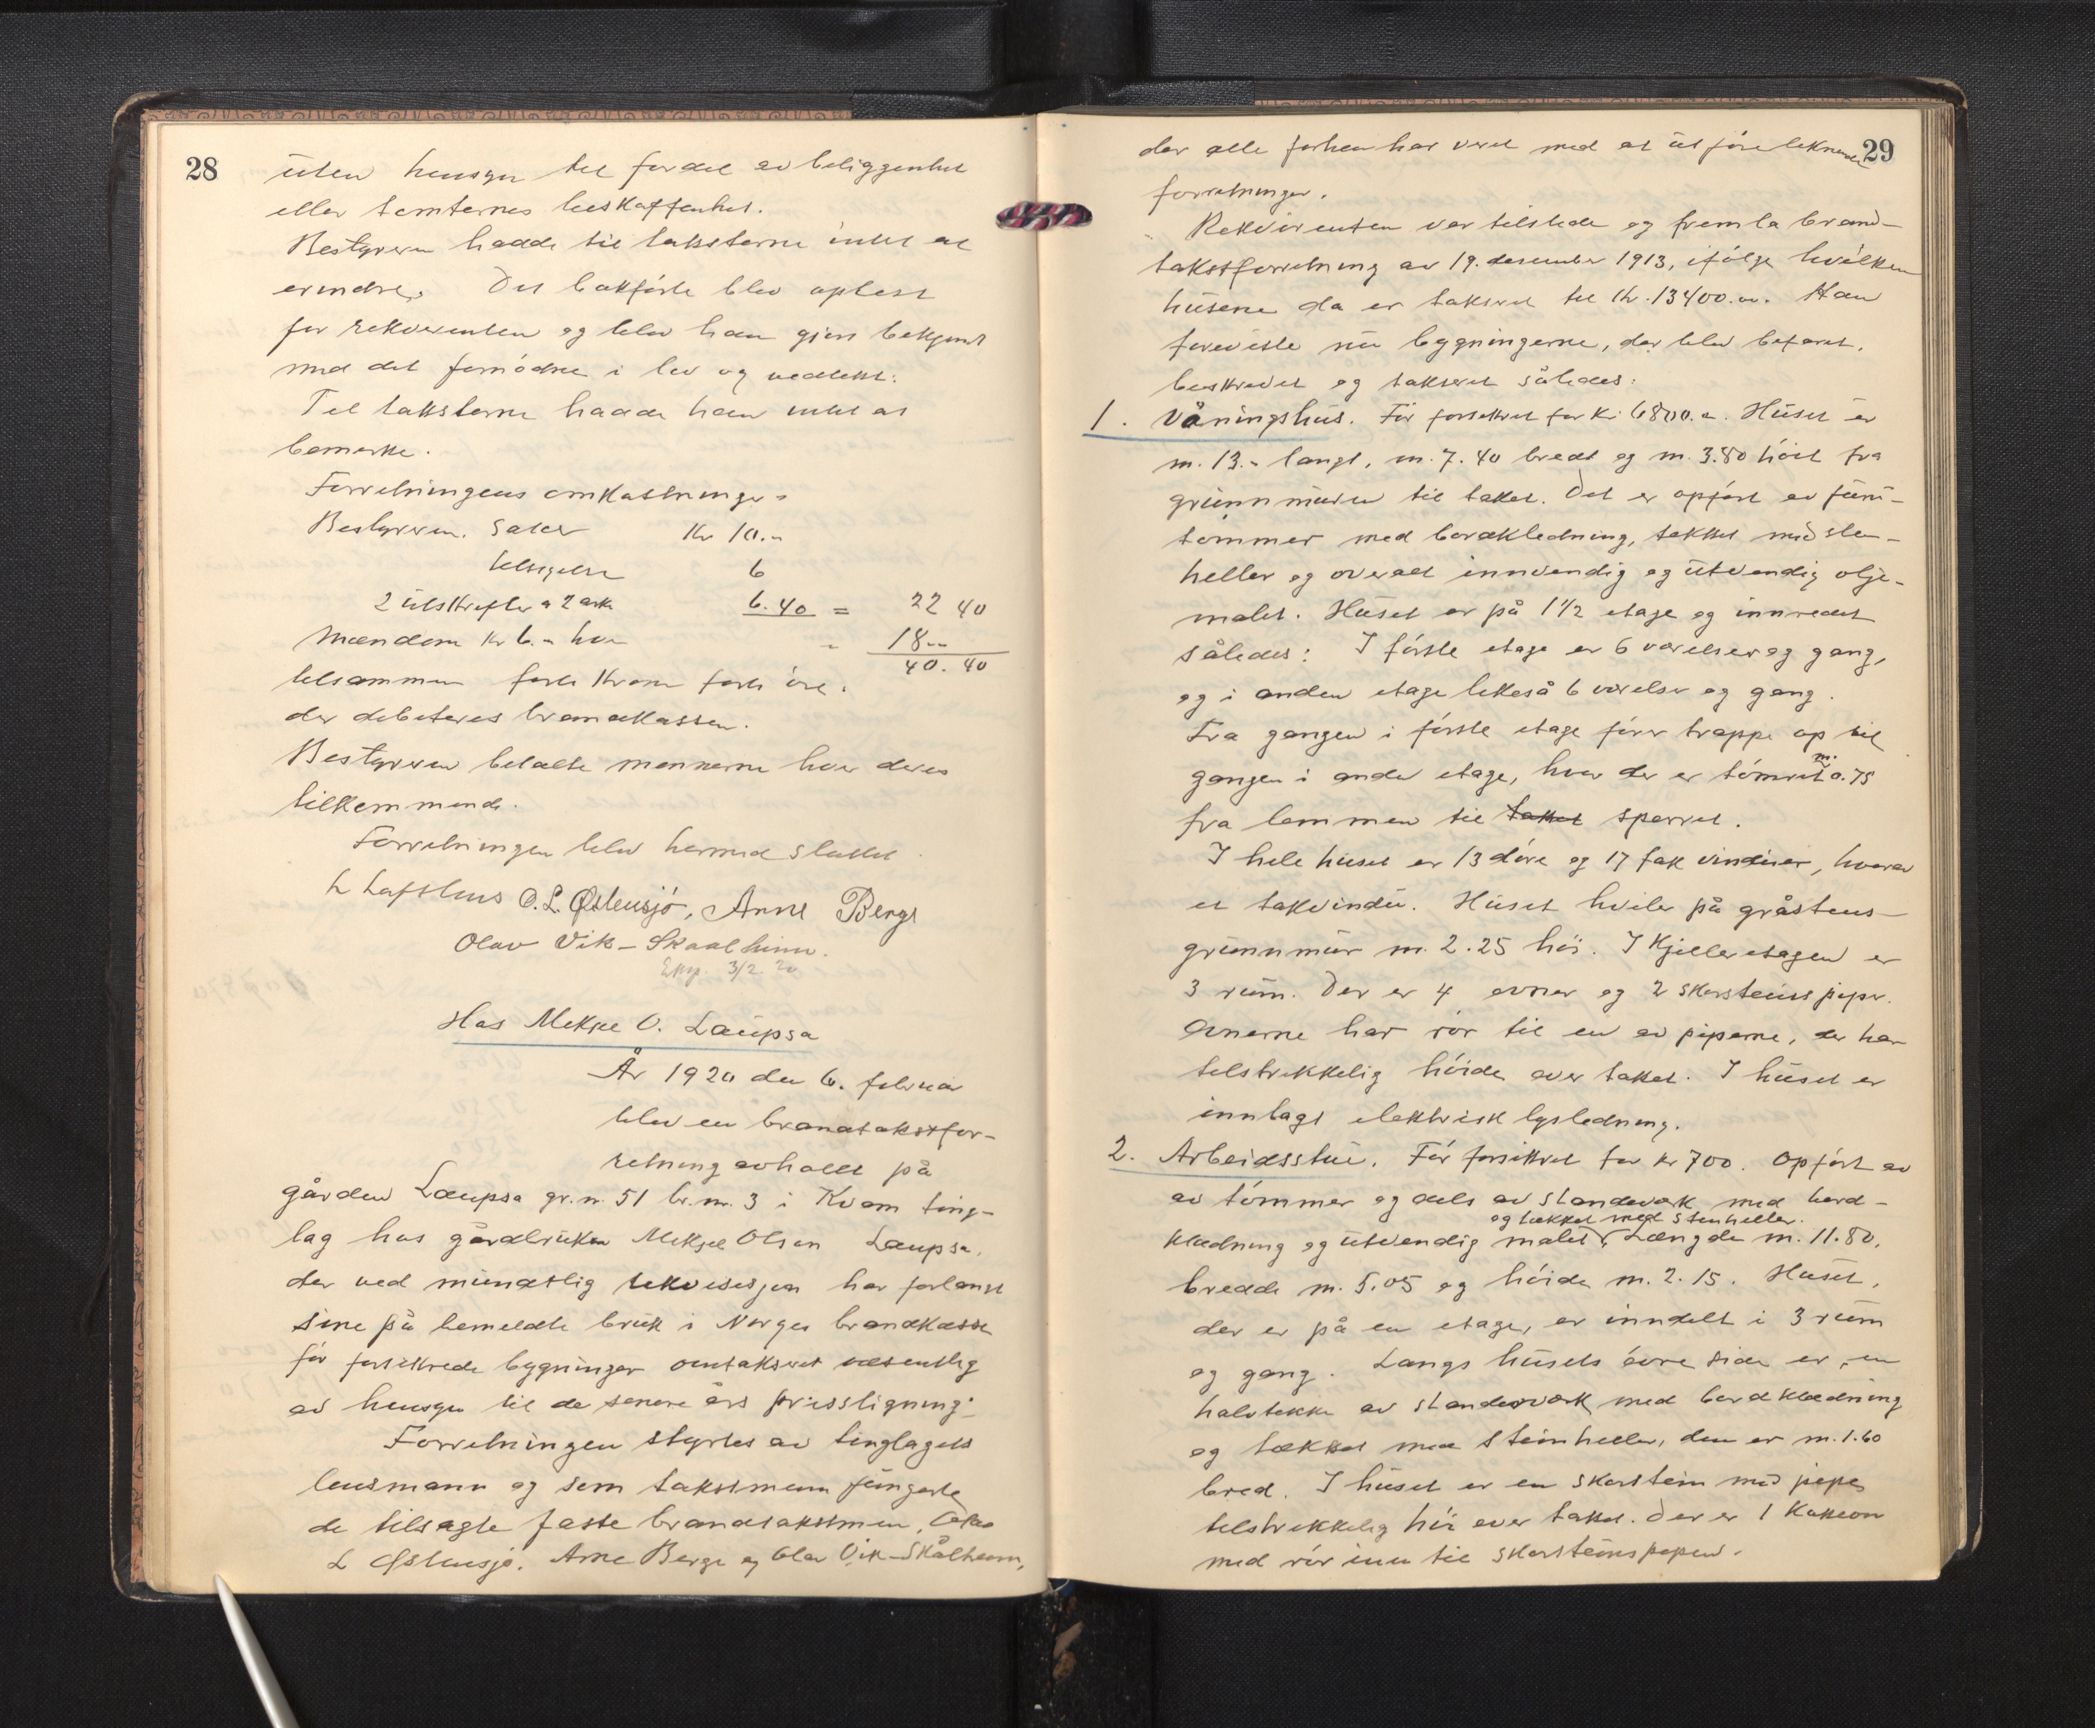 28
uten hensyn til fordel av beliggenhet
eller tomternes beskaffenhet.
Bestyreren hadde til taksterne intet at
erindre. Det bokførte blev oplest
for rekvirenten og blev han gjort bekjent
med det fornødne i lov og vedtekt.
Til taksterne hadde han intet at
bemerke.
Forretningens omkostninger:
Bestyreren. salær Kr 10.-
tilsigelse 6
2 utskrifter a 2 ark 6.40 = 22 40
Mændene kr 6.- hver - 18 -
40.40
tilsammen forti krone forti øre.
der debiteres brandkassen.
Bestyreren betalte mennerne hver deres
tilkommende.
Forretningen blev hermed sluttet
L Lofthus O. L. Østensjø, Arne Berge
Olav Vik-Skaalheim.
Exp. 3/2 20
Hos Mikkel O. Laupsa
År 1920 den 6. februar
blev en brandtakstfor-
retning avholdt på
gården Laupsa gr.n. 51 br.nr. 3 i Kvam ting-
lag hos gårdbruker Mikjel Olsen Laupsa,
der ved mundtlig rekvisisjon har forlangt
sine på bemeldte bruk i Norges brandkasse
før forsikrede bygninger omtakseret væsentlig
av hensyn til de senere års prisstigning.
Forretningen styrtes av tinglagets
lensmann og som takstmenn fungerte
de tilsagte faste brandtakstmen,
L Østensjø. Arne Berge og Olav Vik-Skålheim,
29
der alle forhen har veret med at utføre liknende
forretninger.
Rekvirenten var tilstede og fremla brand-
takstforretning av 19. desember 1913, ifølge hvilken
husene da er takseret til Kr. 13400.oo. Han
foreviste nu bygningerne, der blev befaret,
beskrevet og takseret således:
1. Våningshus. Før forsikret for Kr 6800.-. Huset er
m. 13.- langt, m. 7.40 bredt og m. 3.80 høit fra
grunnmuren til taket. Det er opført av furu-
tømmer med bordkledning, tekket med sten-
heller og overalt innvendig og utvendig olje-
malet. Huset er på 1 1/2 etage og innredet
således: I første etage er 6 værelser og gang,
og i anden etage likeså 6 værelser og gang.
Fra gangen i første etage fører trappe op til
gangen i anden etage, hvor der er tømret m. 0.75
fra lemmen til taket sperret.
I hele huset er 13 døre og 17 fak vinduer, hvorav
et takvindu. Huset hviler på gråstens-
grunnmur m. 2.25 høi. I Kjelleretagen er
3 rum. Der er 4 ovner og 2 skorsteins piper.
Ovnerne har rør til en av piperne, der har
tilstrekkelig høide over taket. I huset er
innlagt elektrisk lysledning.
2. Arbeidsstue. Før forsikret for kr 700. Opført av
av tømmer og dels av standerværk med bord-
og tækket med stenheller.
klædning og utvendig malet, Længde m. 11.80,
bredde m. 5.05 og høide m. 2.15. Huset,
der er på en etage, er inndelt i 3 rum
og gang. Langs husets øvre side er en
halvtekke av standerværk med bordklædning
og tækket med steinheller, den er m. 1.60
bred. I huset er en skorstein med pipe
tilstrekkelig høi over taket. Der er 1 Kakeovn
med rør inn til skorsteinspipen.